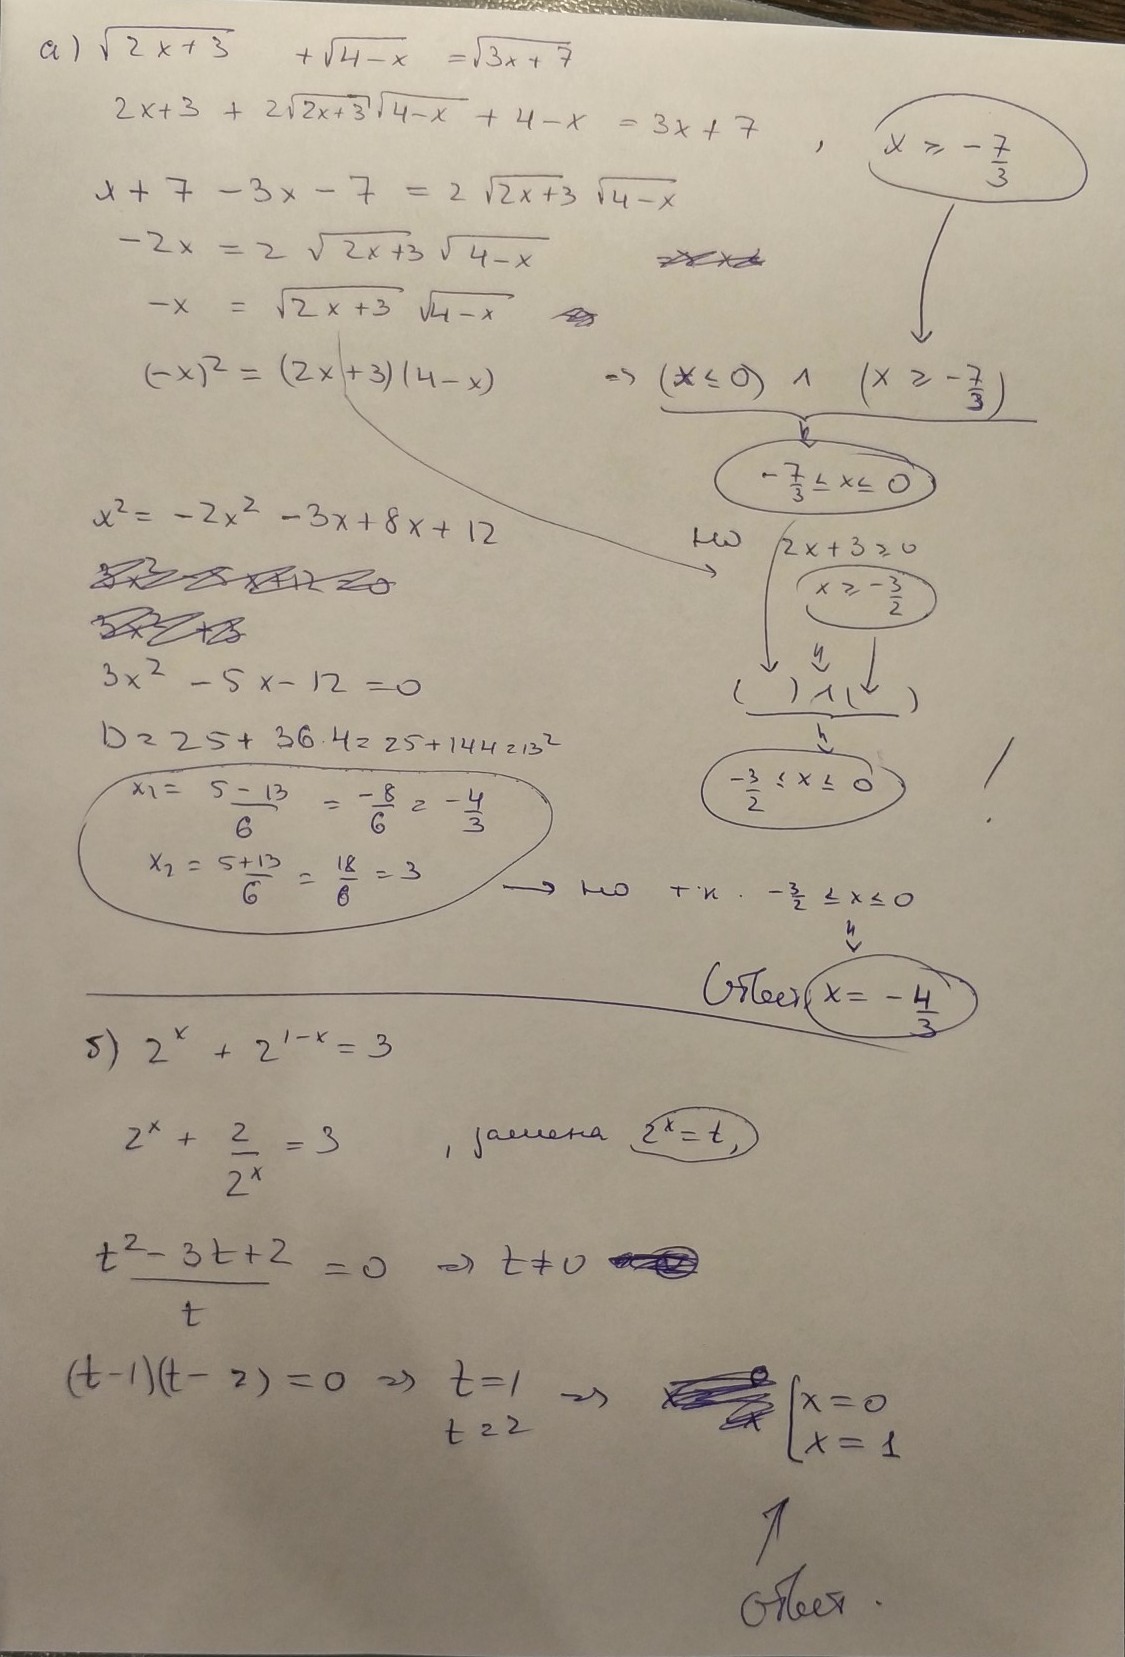 а) √(2x+3) + √(4-x) = √(3x+7)
2x+3 + 2√(2x+3) √(4-x) + 4-x = 3x+7 , x ≥ -7/3
x+7 -3x-7 = 2 √(2x+3) √(4-x)
-2x = 2 √(2x+3) √(4-x)
-x = √(2x+3) √(4-x)
(-x)² = (2x+3)(4-x) => (x ≤ 0) ∧ (x ≥ -7/3)
-7/3 ≤ x ≤ 0
x² = -2x² -3x+8x+12
но 2x+3 ≥ 0
x ≥ -3/2
3x² -5x-12 = 0
( ) ∧ ( )
D = 25+ 36·4 = 25+144 = 13²
-3/2 ≤ x ≤ 0 !
x₁ = (5-13)/6 = -8/6 = -4/3
x₂ = (5+13)/6 = 18/6 = 3 → но т.к. -3/2 ≤ x ≤ 0
Ответ x = -4/3
б) 2^x + 2^(1-x) = 3
2^x + 2/2^x = 3 , замена 2^x = t,
(t²-3t+2)/t = 0 => t ≠ 0
(t-1)(t-2) = 0 => t=1 => [x = 0
t=2 x = 1
Ответ.